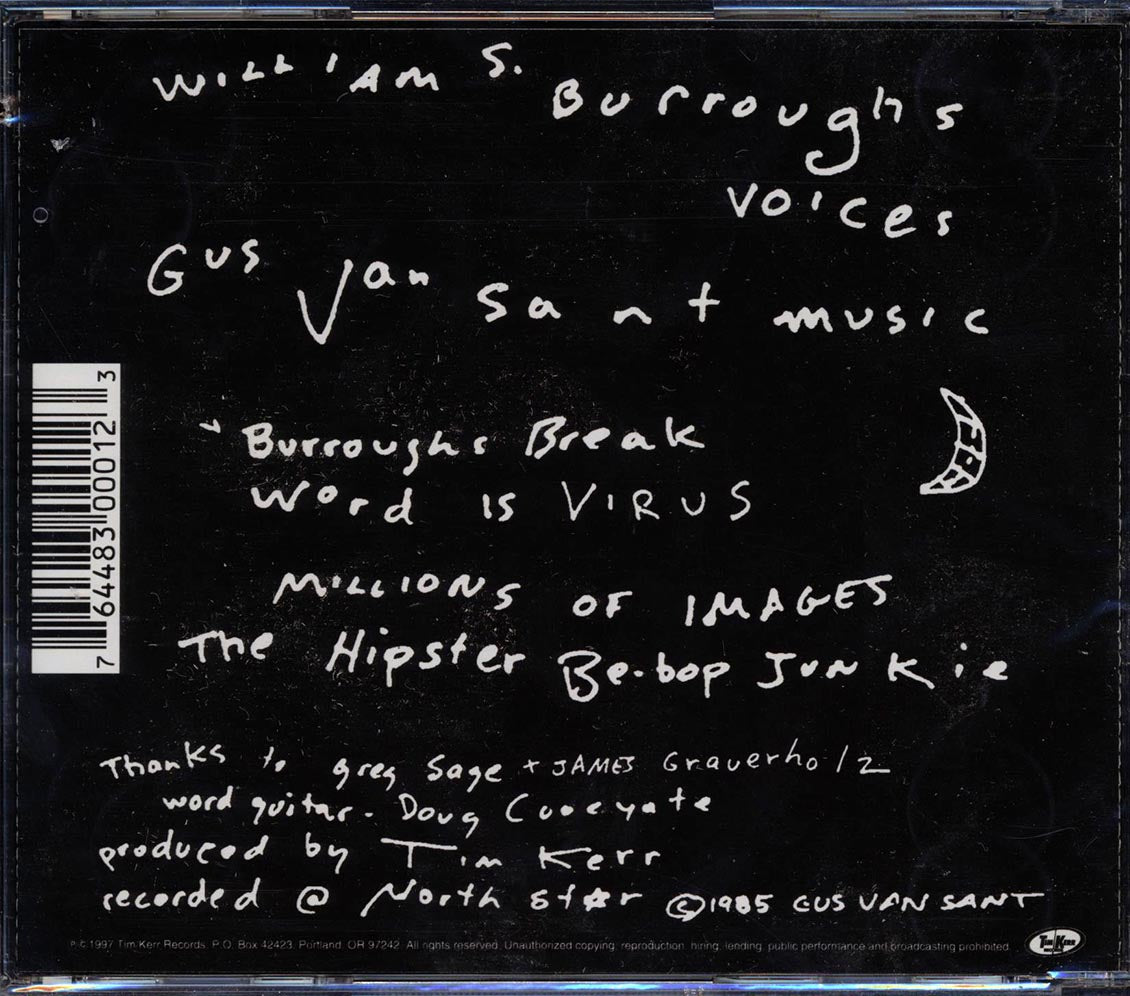 WILLIAM S. Burroughs
voices
Gus Van Sant music
Burroughs Break
Word is VIRUS
MILLIONS OF IMAGES
The Hipster Be-bop Junkie
Thanks to greg Sage + JAMES Grauerholz
word guitar - Doug
produced by Tim Kerr
recorded @ North Star ©1985 GUS VAN SANT
℗ © 1997 Tim Kerr Records. P.O. Box 42423. Portland. OR 97242. All rights reserved. Unauthorized copying, reproduction, hiring, lending, public performance and broadcasting prohibited.
TIM/KERR
7 64483 00012 3